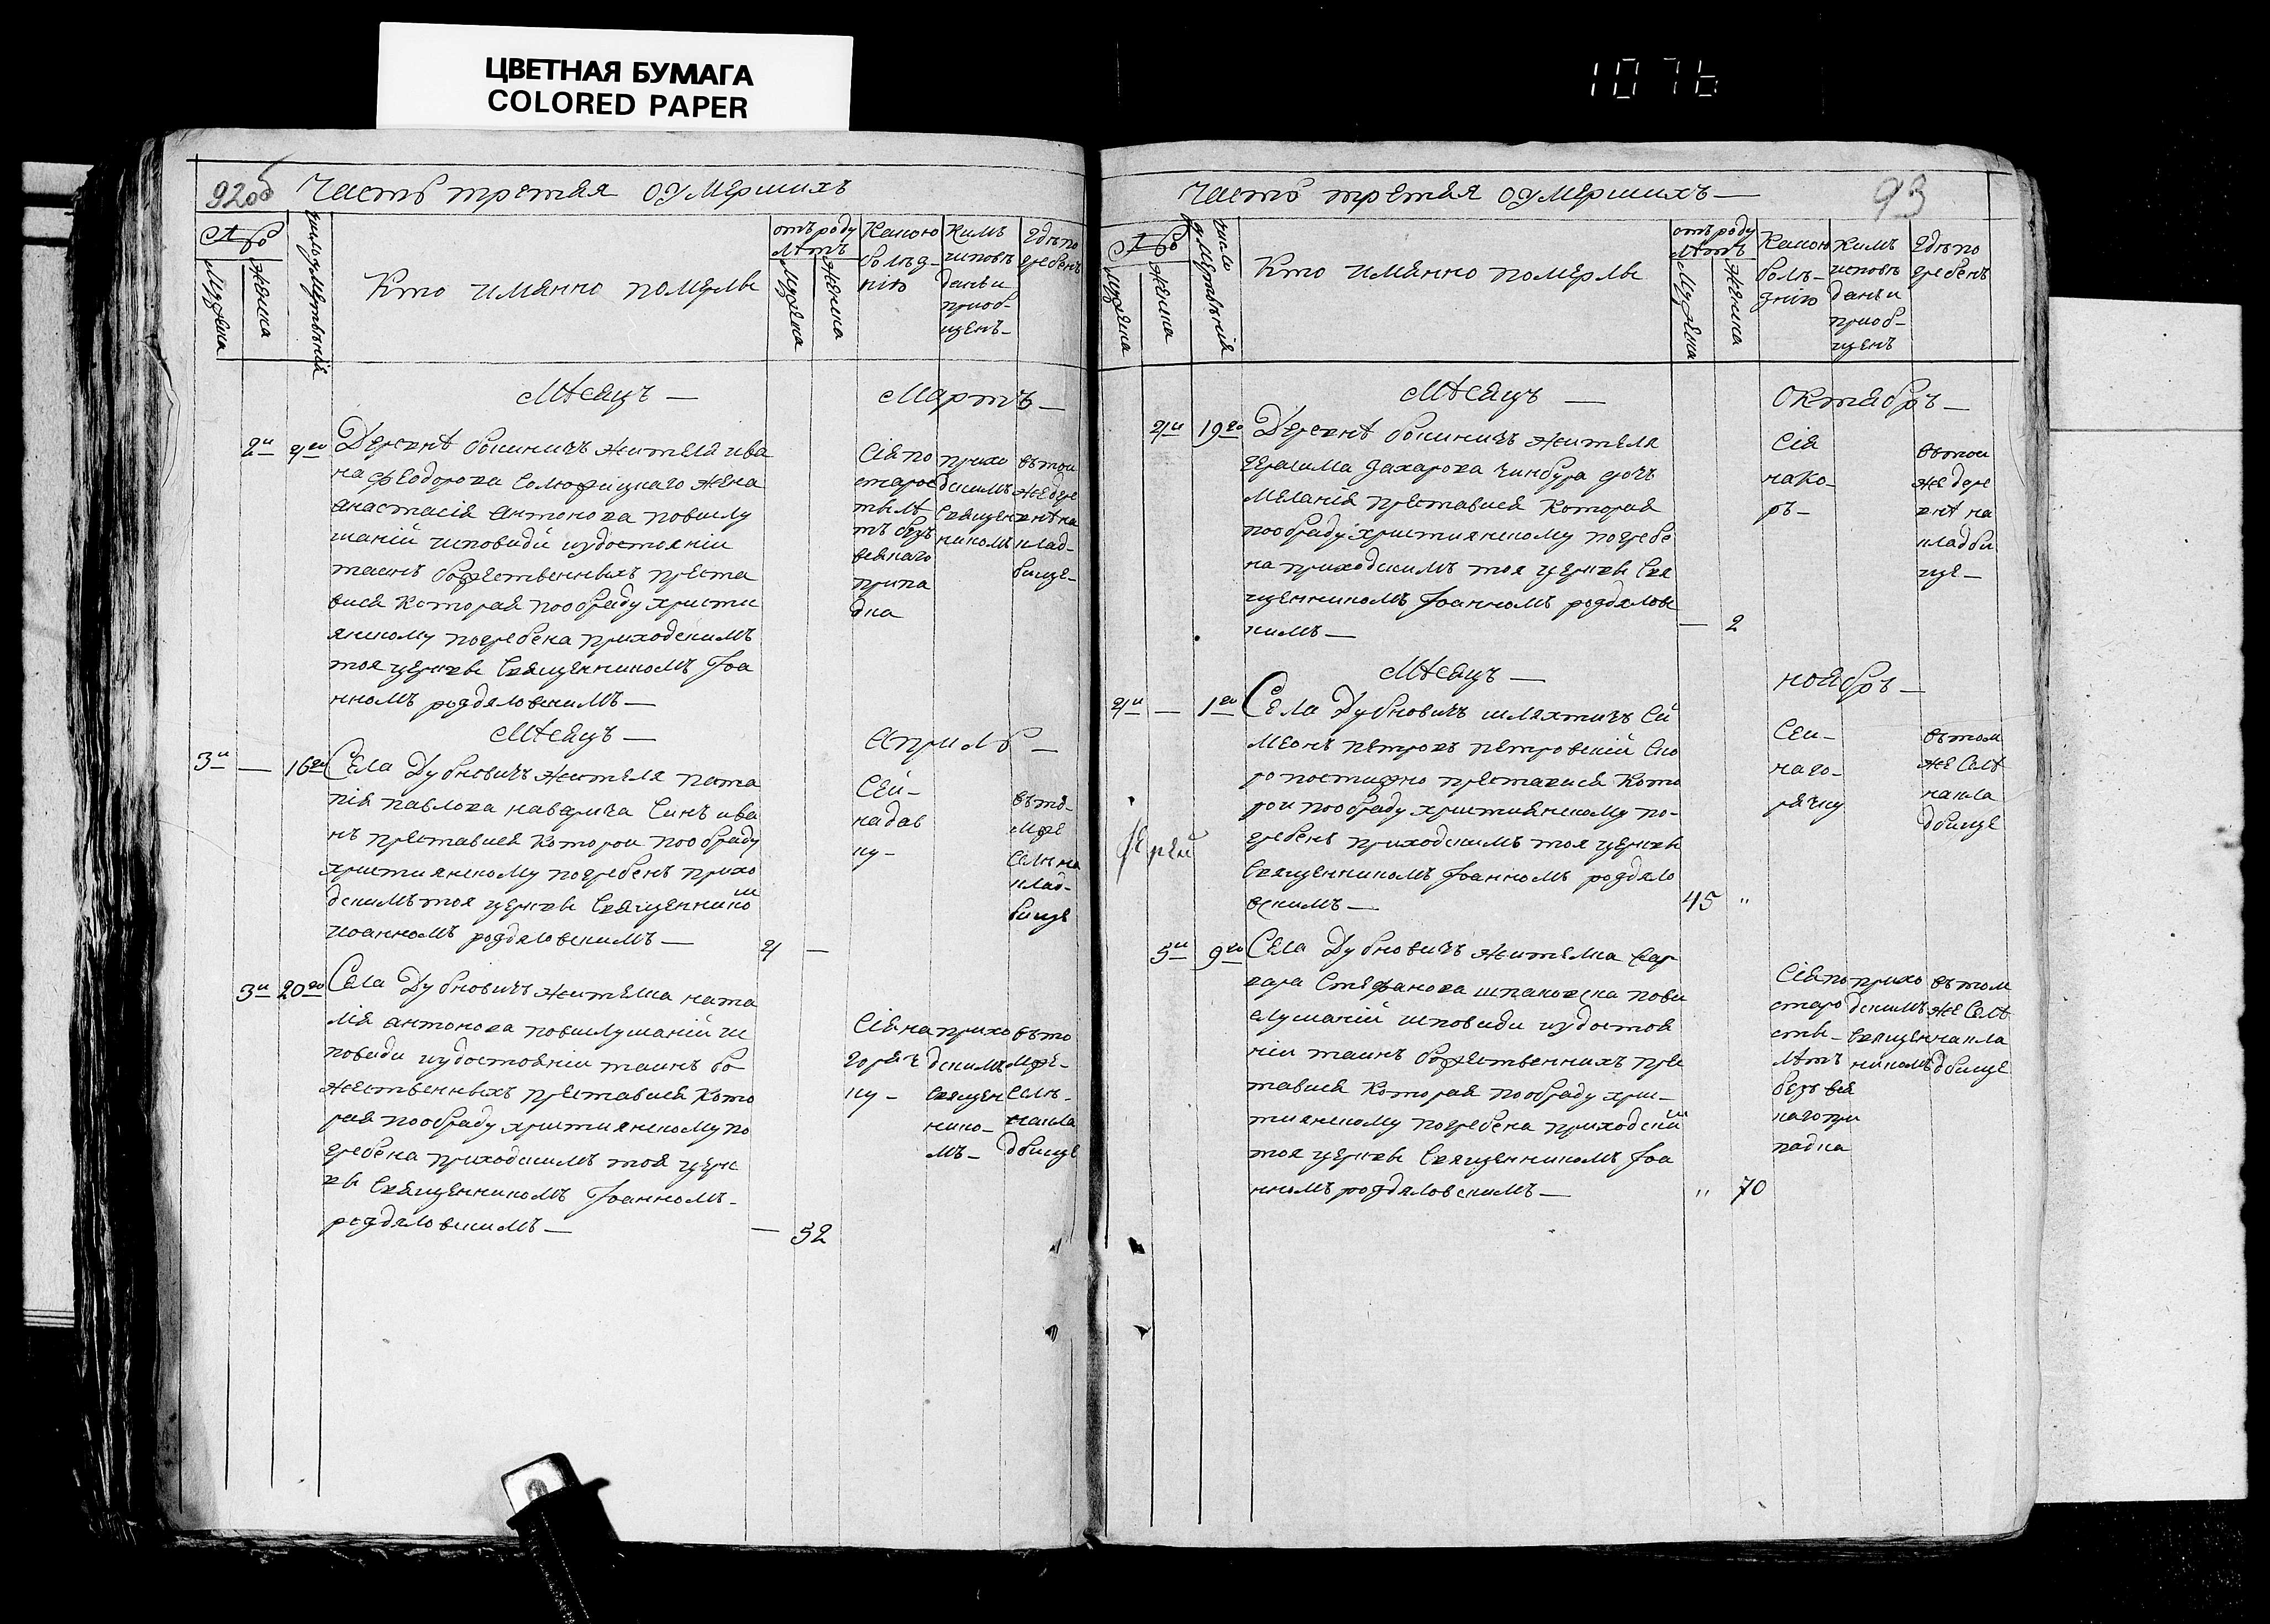 ЦВЕТНАЯ БУМАГА
COLORED PAPER
1076
92об
Часть третая оумершихъ
Мужена
Женска
Кто имянно померлъ
отъ роду
лѣтъ
Мужена
Женска
Какою
болѣз-
нію
Кимъ
исповѣ
данъ и
приоб-
щенъ-
гдѣ по
гребенъ
Мѣсяцъ — Мартъ —
2и
Деревнѣ Жителя ива
на Феодорова жена
анастасія антонова повислу
шаній исповиди иудостояніи
таинъ божественныхъ преста
вися Которая пообраду христи
янскому погребена приходскимъ
тоя церкви Священникомъ Іоа
нномъ роздяловскимъ —
Сія по
старос
ти лѣ
тъ безъ
всякаго
припа
дка
прихо
дскимъ
священ
никомъ
втои
же дере
внѣ на
клад-
бище-
Мѣсяцъ — Априль —
3и — 16го
Села Дубновичъ Жителя пата
пія павлова Синъ ива
нъ преставися Которои пообраду
християнскому погребенъ прихо
дскимъ тоя церкви Священнико
м
иоанномъ роздяловскимъ —
— 
Сеи-
на дав
ку-
вто-
мже
Селѣ на
клад-
бище
3и 20го
Села Дубновичъ Жителка ната
лія антонова повислушаній ис
повиди иудостояніи таинъ бо-
жественныхъ преставися Кото
рая пообраду християнскому по
гребена приходскимъ тоя церк
ви Священникомъ Іоанномъ-
роздяловскимъ —
— 32
Сія на
горяч
ку-
прихо
дскимъ
священ
нико-
мъ-
вто
мже-
Селѣ-
накла
дбище
Часть третая оумершихъ —
93
число
Мужена
Женска
Кто имянно померлъ
отъ роду
лѣтъ
Мужена
Женска
Какою
болѣ-
знію
Кимъ
исповѣ
данъ и
приоб-
щенъ
гдѣ по
гребенъ
Мѣсяцъ — Октябрь —
19го
Деревнѣ Жителя
герасима Захарова дочь
Меланія преставися Которая
пообраду християнскому погребе
на приходскимъ тоя церкви Свя
щенникомъ Іоанномъ роздялов
кимъ —
— 2
Сія
нако-
ръ-
втои
же дере
внѣ на
кладби
ще —
Мѣсяцъ — ноябрь —
— 1го
Села Дубновичъ шляхтичъ Си
меонъ петровъ петровскій ско
ропостижно преставися Кото
рои пообраду християнскому по-
гребенъ приходскимъ тоя церкви
Священникомъ Іоанномъ роздяло
вскимъ —
45 "
Сеи-
наго-
рячку
втом
же Селѣ
накла
дбище
5и 9го
Села Дубновичъ Жителка вар
вара Стефанова пови
слушаній исповиди иудостоя
ніи таинъ божественнихъ прес
тавися Которая пообраду хри-
стиянскому погребена приходски
м
тоя церкви Священникомъ Іоа
нномъ роздяловскимъ —
" 70
Сія по
старо
сти-
лѣтъ
безъ вся
каго при
падка
прихо
дскимъ
священ
никомъ
втом
же Селѣ
накла
дбище